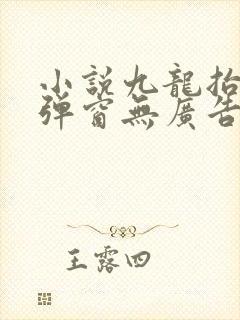 小說九龍抬
彈窗無廣告
王露四